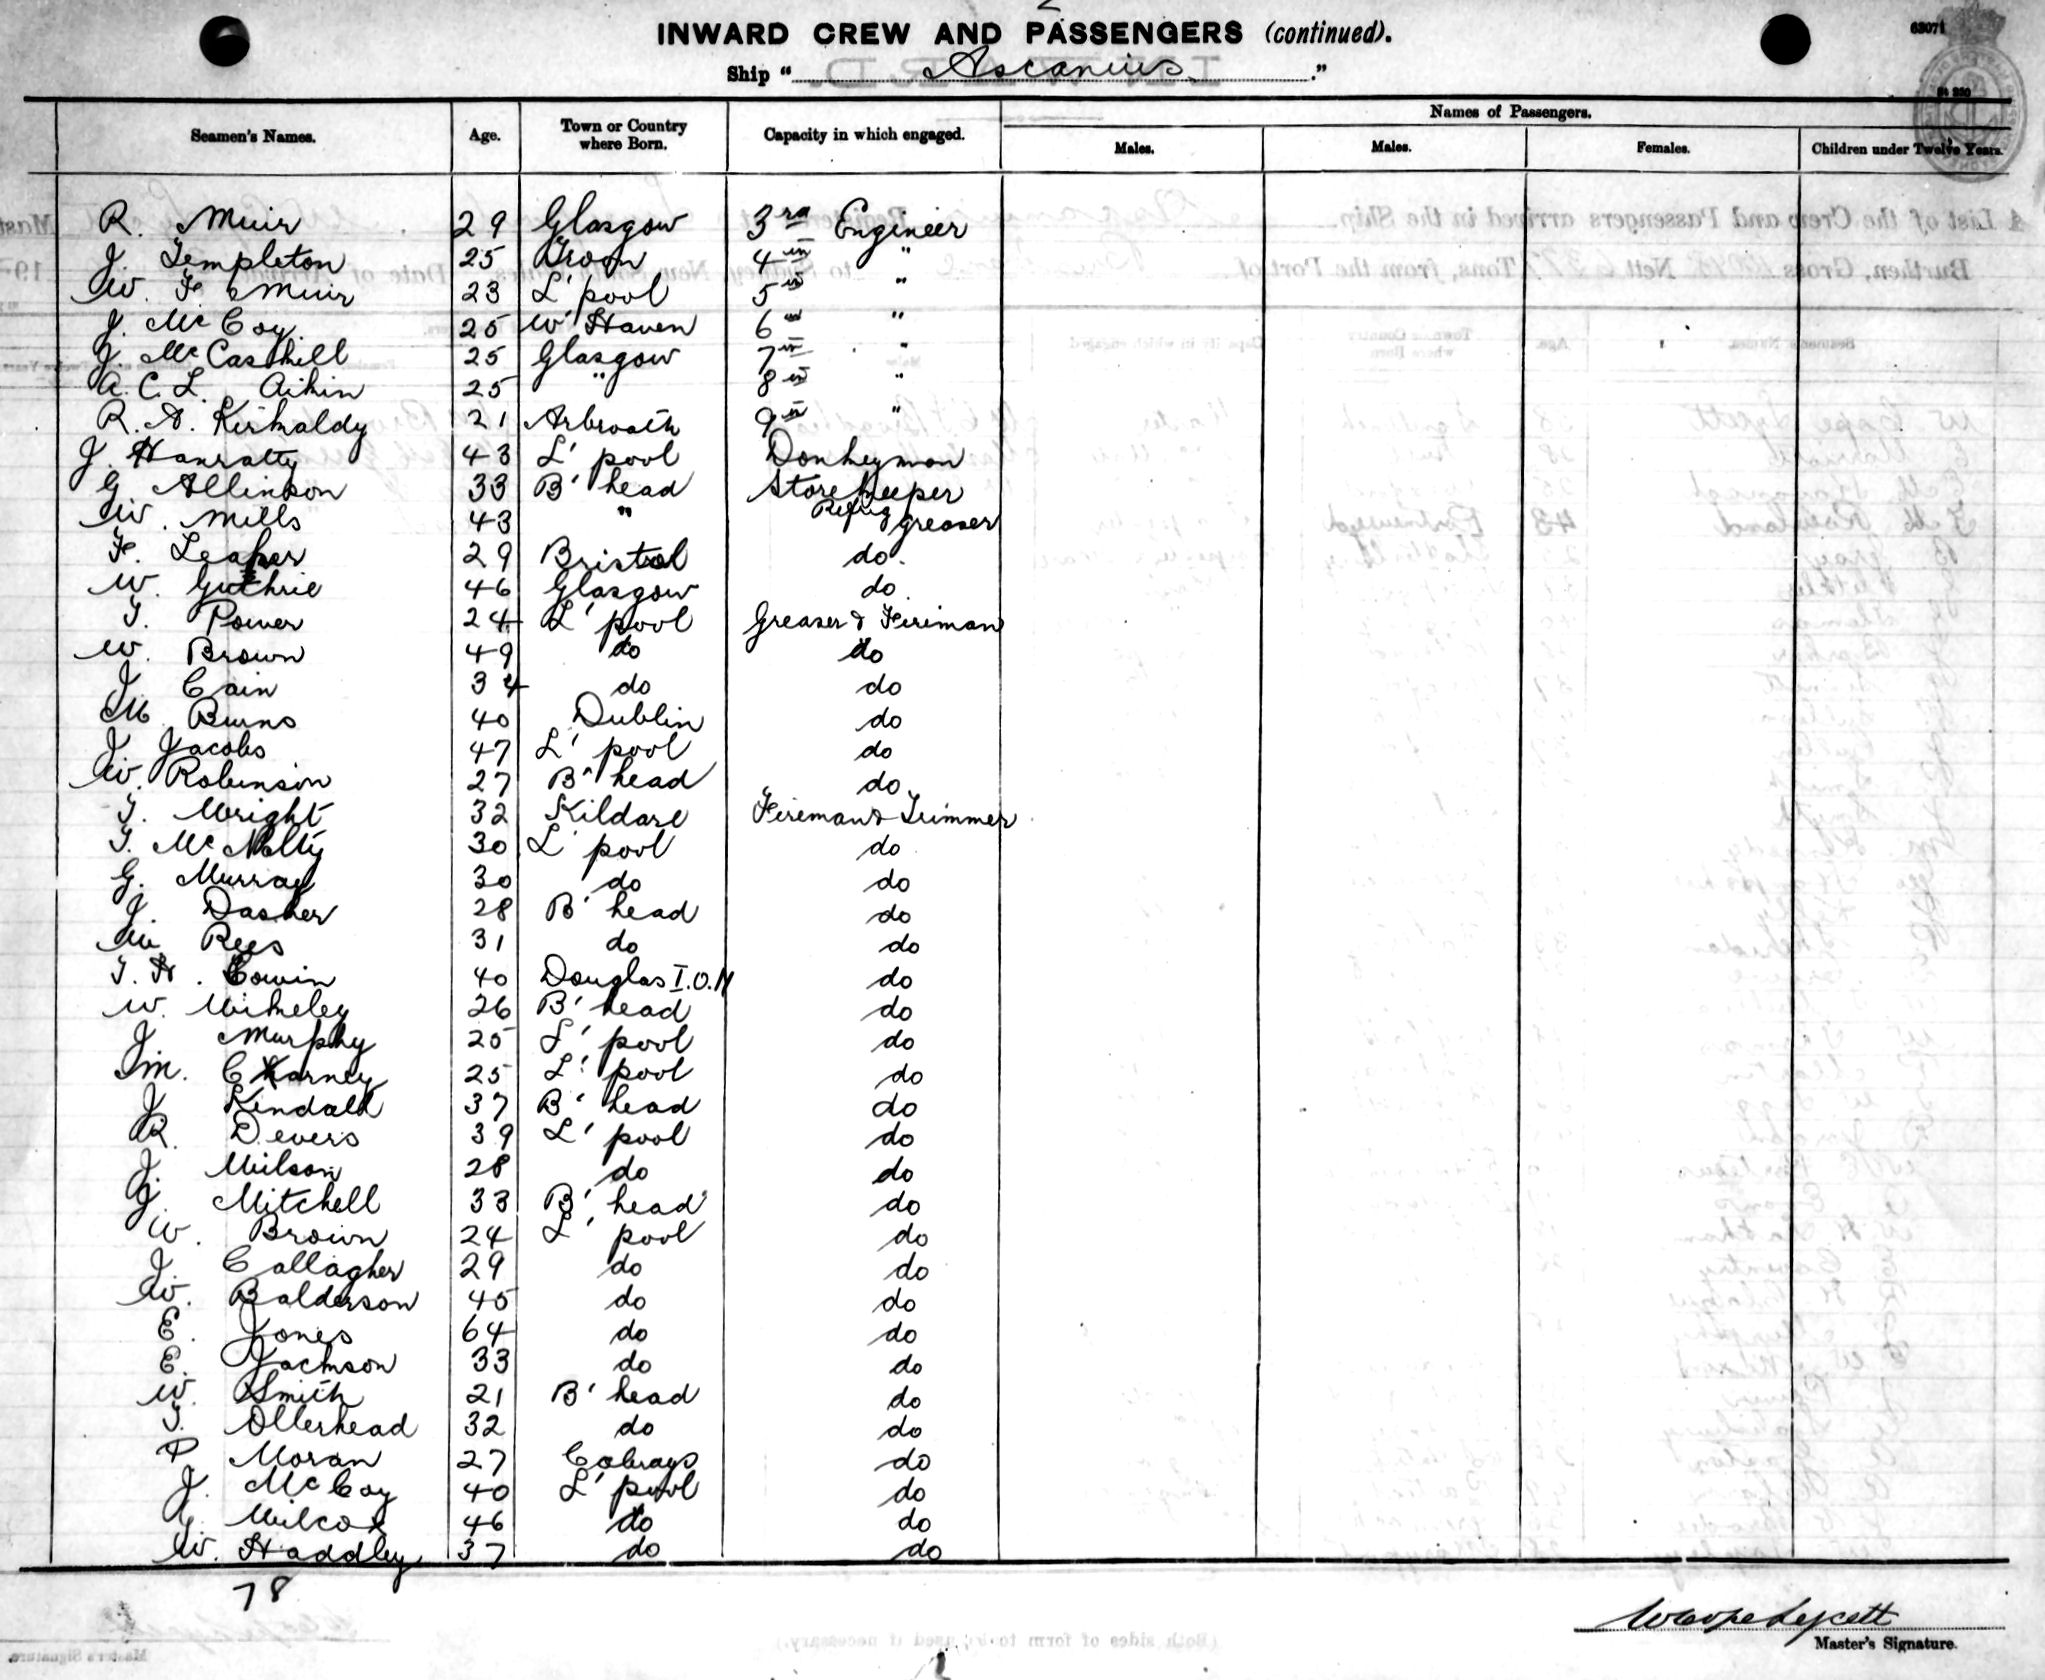 INWARD CREW AND PASSENGERS (continued).
63071
Ship "Ascanius."
St 230
Seamen's Names. Age. Town or Country where Born. Capacity in which engaged. Names of Passengers.
Males. Males. Females. Children under Twelve Years.
R. Muir 29 Glasgow 3rd Engineer
J. Templeton 25 Troon 4th "
W. F. Muir 23 L'pool 5th "
J. McCoy 25 W'Haven 6th "
J. McCaskill 25 Glasgow 7th "
A. C. L. Aikin 25 " 8th "
R. A. Kirkaldy 21 Arbroath 9th "
J. Hanratty 43 L'pool Donkeyman
G. Allinson 33 B'head Storekeeper
W. Mills 43 " Refrig Greaser
F. Leaper 29 Bristol do.
W. Guthrie 46 Glasgow do.
T. Power 24 L'pool Greaser & Fireman
W. Brown 49 do do
J. Cain 34 do do
M. Burns 40 Dublin do
J. Jacobs 47 L'pool do
W. Robinson 27 B'head do
T. Wright 32 Kildare Fireman & Trimmer
T. McNolty 30 L'pool do
G. Murray 30 do do
J. Dasher 28 B'head do
W Rees 31 do do
T. H. Cowin 40 Douglas I.O.M do
W. Wikeley 26 B'head do
J Murphy 25 L'pool do
M. Carney 25 L'pool do
J Kendall 37 B'head do
R. Devers 39 L'pool do
J. Wilson 28 do do
J. Mitchell 33 B'head do
W. Brown 24 L'pool do
J. Callagher 29 do do
W. Balderson 45 do do
E. Jones 64 do do
E. Jackson 33 do do
W. Smith 21 B'head do
T. Ollerhead 32 do do
P Moran 27 do
J. McCoy 40 L'pool do
Wilcox 46 do do
W. Haddley 37 do do
78
W Cope Lycett
Master's Signature.